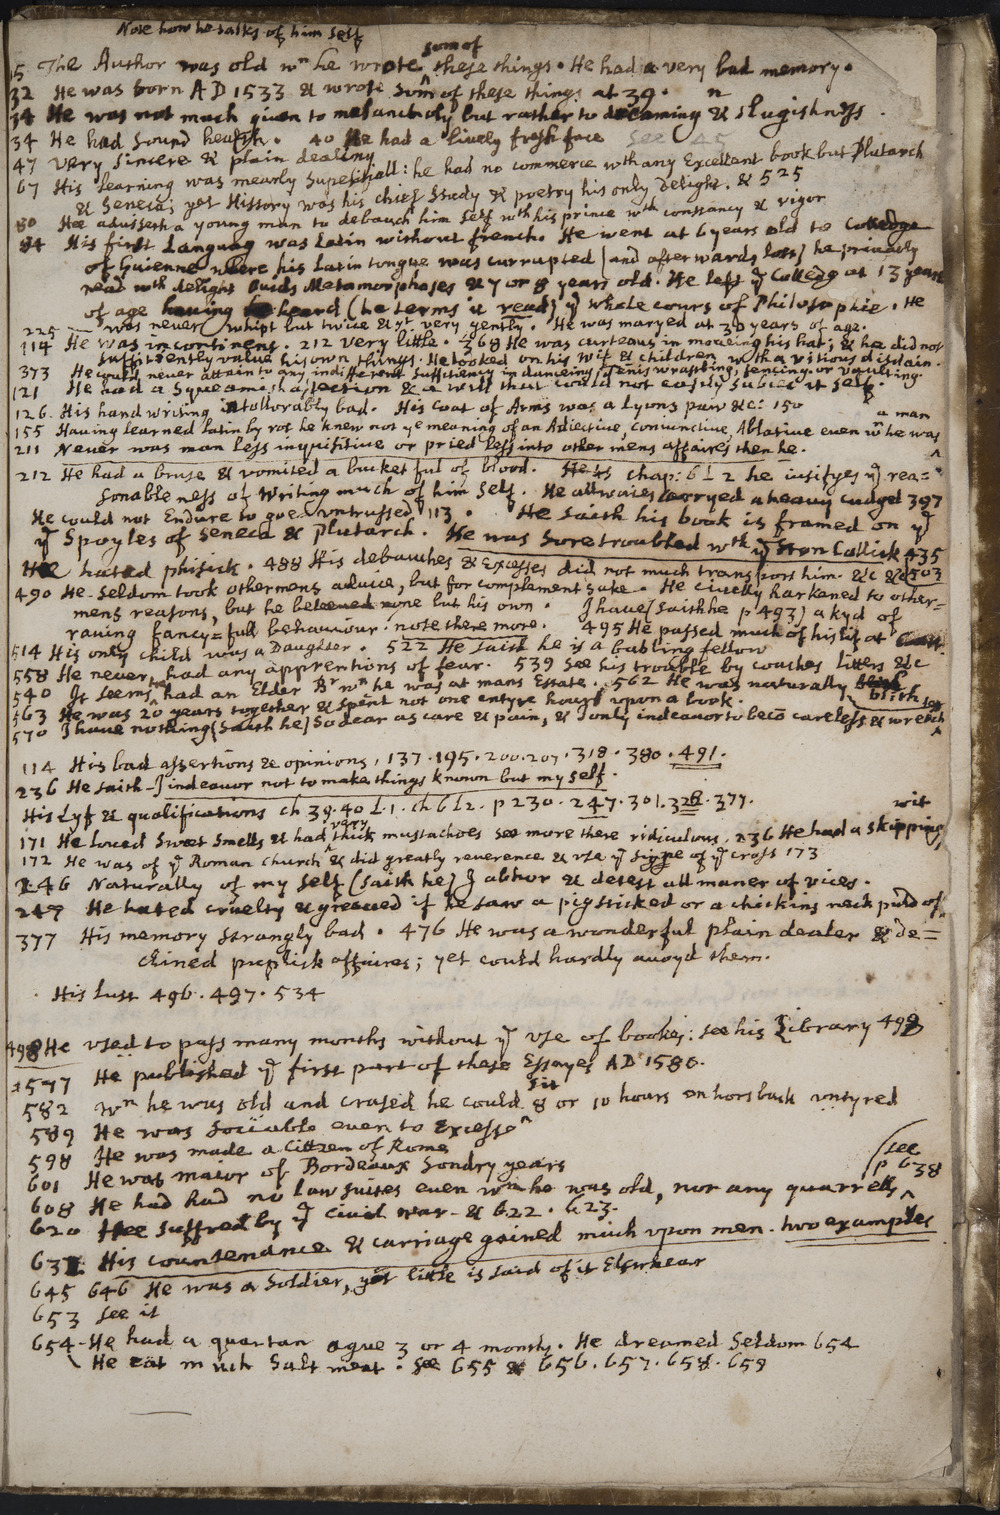 Note how he talks of him self
som of
15 The Author was old wn he wrote these things. He had a very bad memory.
32 He was born A D 1533 & wrote som of these things at 39.
34 He was not much given to melancholy but rather to dreaming & slugishness.
34 He had sound health. 40 He had a lively fresh face see 45
47 very sincere & plain dealing
67 His learning was mearly superficiall: he had no commerce with any Excellent book but Plutarch
& Seneca; yet History was his chief study & poetry his only delight. & 525
80 Hee adviseth a young man to debauch him self wth his prince wth constancy & vigor
84 His first Languag was Latin without french. He went at 6 years old to Colledge
of Guienne where his Latin tongue was currupted [and afterwards lost] he privatly
read wth delight Ovids Metamorphoses at 7 or 8 years old. He left ye Colledg at 13 years
of age having heard (he terms it read) ye whole cours of Philosophie. He
was never whipt but twice & yt very gently. He was maryed at 30 years of age.
225
114 He was incontinent. 212 very little. 368 He was curteous in moveing his hat; & he did not
sufficiently value his own things. He looked on his wif & children with a vitious disdain.
373 He could never attain to any indifferent sufficiency in danceing, Tenis wrastling, fencing, or vaulting.
121 He had a squeamish affection & a will that could not easily subject it self.
126. His hand writing intollorably bad. His Coat of Arms was a Lyons paw &c: 150
a man
155 Having learned Latin by rot he knew not ye meaning of an Adiective, coniunctive, Ablative even wn he was
211 Never was man less inquisitive or pried less into other mens affaires then he.
212 He had a bruse & vomited a bucket ful of blood. He chap: 6 L 2 he iustifyes ye rea=
sonable ness of writing much of him self. He allwaies carryed a heavy cudgel 397
He could not Endure to goe untrussed 113. He saith his book is framed on ye
ye Spoyles of Seneca & Plutarch. He was sore troubled wth ye ston Collick 435
Hee hated phisick. 488 His debauches & Excesses did not much transport him. &c & 503
490 He seldom took other mens advice, but for complement sake. He civelly harkened to other=
mens reasons, but he beleeved none but his own. I have (saith he p 493) a kyd of
raving fancy=full behaviour: note there more. 495 He passed much of his lif at
514 His only child was a Daughter. 522 He saith he is a babling fellow
558 He never had any apprentions of fear. 539 see his trouble by coaches litters &c
540 It seems had an Elder Br wn he was at mans Estate. 562 He was naturally blith
563 He was 20 years together & spent not one entyre hour upon a book.
570 I have nothing (saith he) so dear as care & pain, & I only indeavor to beco careless & wrech
114 His bad assertions & opinions, 137. 195. 200. 207. 318. 380. 491.
236 He saith - I indeavor not to make things known but my self.
His Lyf & qualifications ch 39. 40 L. 1. ch 6 L 2. p 230. 247. 301. 326. 377.
very
wit
171 He loved sweet smells & had thick mustachoes see more there ridiculous. 236 He had a skipping
172 He was of ye Roman church & did greatly reverence & use ye signe of ye cross 173
246 Naturally of my self (saith he) I abhor & detest all maner of vices.
247 He hated cruelty & greeved if he saw a pig sticked or a chickins neck puld of
377 His memory strangly bad. 476 He was a wonderful plain dealer & de=
clined puplick affaires; yet could hardly avoyd them.
His Lust 496. 497. 534
498 He used to pass many months without ye use of bookes: see his Library 499
577 He published ye first part of these Essayes AD 1580.
sit
582 Wn he was old and crased he could 8 or 10 hours on hors back untyred
589 He was sociable even to Excesse
598 He was made a Cittzen of Rome
see
p 638
601 He was maior of Bordeaux Sondry years
608 He had had no Law suites even wn he was old, nor any quarrells
620 Hee suffred by ye civil war - & 622. 623.
637 His countenance & carriage gained much upon men. two examples
645 646 He was a Soldier, yet little is said of it Elswhear
653 see it
654 - He had a quartan ague 3 or 4 months. He dreamed seldom 654
He eat much salt meat. see 655 & 656. 657. 658. 659